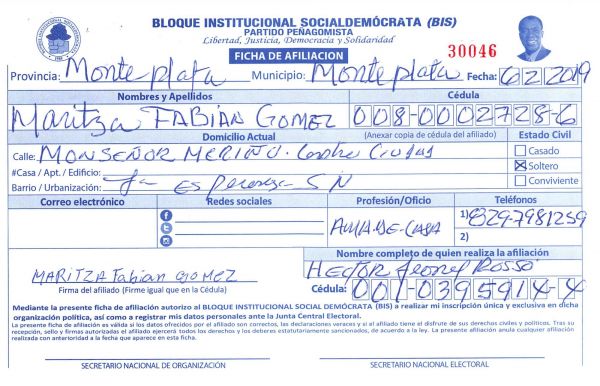 BLOQUE INSTITUCIONAL SOCIALDEMÓCRATA (BIS)
PARTIDO PEÑAGOMISTA
Libertad, Justicia, Democracia y Solidaridad
FICHA DE AFILIACION
30046
Provincia: Monte plata Municipio: Monte plata Fecha: 6/2/2019
Nombres y Apellidos Cédula
Maritza FABIÁN GOMEZ 008-0002728-6
Domicilio Actual (Anexar copia de cédula del afiliado) Estado Civil
Calle: MONSEÑOR MERIÑO. Ciudad
Casado
#Casa / Apt. / Edificio:
Soltero
Barrio / Urbanización: La Esperanza SN
Conviviente
Correo electrónico Redes sociales Profesión/Oficio Teléfonos
AMA-DE-CASA 1) 829-7981259
2)
Nombre completo de quien realiza la afiliación
HECTOR Leonel ROSSÓ
MARITZA Fabian GOMEZ
Firma del afiliado (Firme igual que en la Cédula) Cédula: 001-0395914-4
Mediante la presente ficha de afiliación autorizo al BLOQUE INSTITUCIONAL SOCIAL DEMÓCRATA (BIS) a realizar mi inscripción única y exclusiva en dicha
organización política, así como a registrar mis datos personales ante la Junta Central Electoral.
La presente ficha de afiliación es válida si los datos ofrecidos por el afiliado son correctos, las declaraciones veraces y si el afiliado tiene el disfrute de sus derechos civiles y políticos. Tras su
recepción, sello y firmas autorizadas el afiliado ejercerá todos los derechos y los deberes estatutariamente sancionados, de acuerdo a la ley. La presente afiliación anula cualquier afiliación
realizada con anterioridad a la fecha que aparece en esta ficha.
SECRETARIO NACIONAL DE ORGANIZACIÓN SECRETARIO NACIONAL ELECTORAL